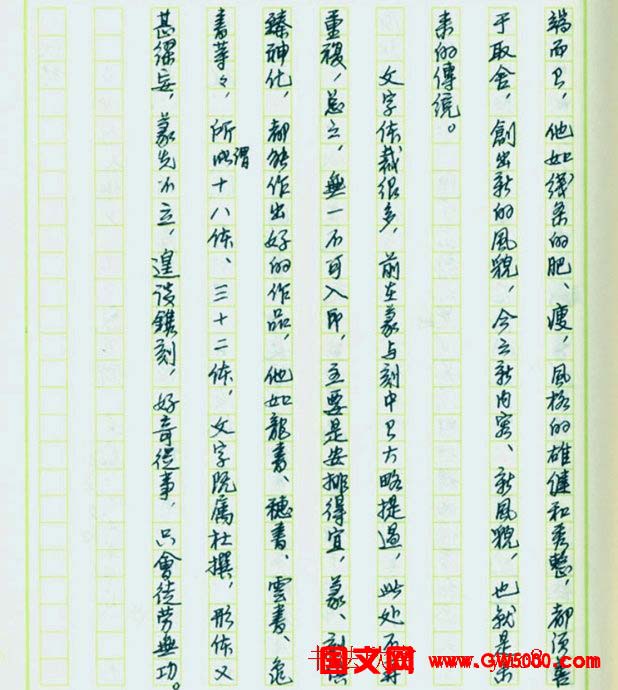 端而已，他如线条的肥、瘦，风格的雄健和秀整，都须善
于取舍，創出新的風貌，今云新内容、新風貌，也就是
来的傳統。
文字体裁很多，前在篆与刻中已大略提過，此处不
重複，总之，無一不可入印，主要是安排得宜，篆、刻
臻神化，都能作出好的作品，他如龍書、穗書、雲書、龟
書等々，所謂十八体、三十二体，文字既属杜撰，形体又
甚謬妄，篆先不立，遑谈鐫刻，好奇從事，只會徒劳無功。
国文网 www.GW5000.com